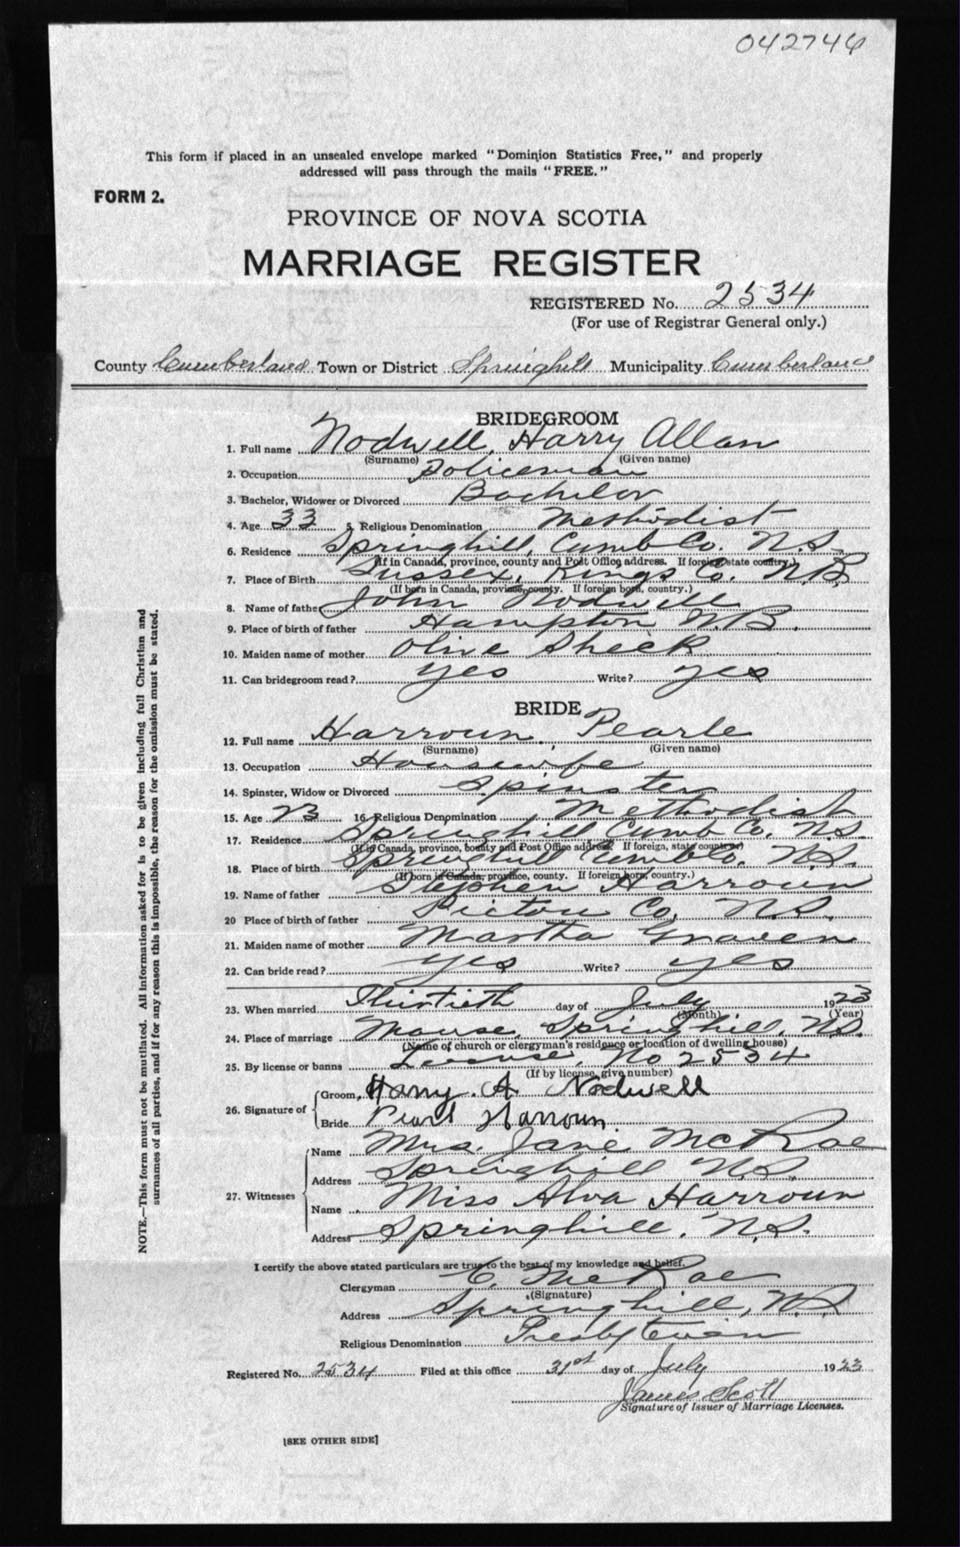 042746
This form if placed in an unsealed envelope marked "Dominion Statistics Free," and properly
addressed will pass through the mails "FREE."
FORM 2.
PROVINCE OF NOVA SCOTIA
MARRIAGE REGISTER
REGISTERED No. 2534
(For use of Registrar General only.)
County Cumberland Town or District Springhill Municipality Cumberland
BRIDEGROOM
1. Full name Nodwell, Harry Allan
(Surname) (Given name)
2. Occupation Policeman
3. Bachelor, Widower or Divorced Bachelor
4. Age 33 5. Religious Denomination Methodist
6. Residence Springhill, Cumb Co. N.S.
(If in Canada, province, county and Post Office address. If foreign state country.)
7. Place of Birth Sussex, Kings Co. N.B.
(If born in Canada, province, county. If foreign born, country.)
8. Name of father John Nodwell
9. Place of birth of father Hampton N.B.
10. Maiden name of mother Olive Sheck
11. Can bridegroom read? yes Write? yes
BRIDE
12. Full name Harroun, Pearle
(Surname) (Given name)
13. Occupation Housewife
14. Spinster, Widow or Divorced Spinster
15. Age 23 16. Religious Denomination Methodist
17. Residence Springhill Cumb Co. N.S.
(If in Canada, province, county and Post Office address. If foreign, state country)
18. Place of birth Springhill Cumb Co. N.S.
(If born in Canada, province, county. If foreign born, country.)
19. Name of father Stephen Harroun
20 Place of birth of father Pictou Co. N.S.
21. Maiden name of mother Martha Graven
22. Can bride read? yes Write? yes
23. When married Thirtieth day of July 1923
(Month) (Year)
24. Place of marriage Manse, Springhill, N.S.
(Name of church or clergyman's residence or location of dwelling house)
25. By license or banns License, No 2534
(If by license, give number)
26. Signature of Groom, Harry. A Nodwell
Bride Pearl Harroun.
27. Witnesses Name Mrs. Jane McRae
Address Springhill N.S.
Name Miss Alva Harroun
Address Springhill, N.S.
I certify the above stated particulars are true to the best of my knowledge and belief.
Clergyman C. McRae
(Signature)
Address Springhill, N.S.
Religious Denomination Presbyterian
Registered No. 2534 Filed at this office 31st day of July 1923
James Scott
Signature of Issuer of Marriage Licenses.
[SEE OTHER SIDE]
NOTE.—This form must not be mutilated. All information asked for is to be given including full Christian and
surnames of all parties, and if for any reason this is impossible, the reason for the omission must be stated.